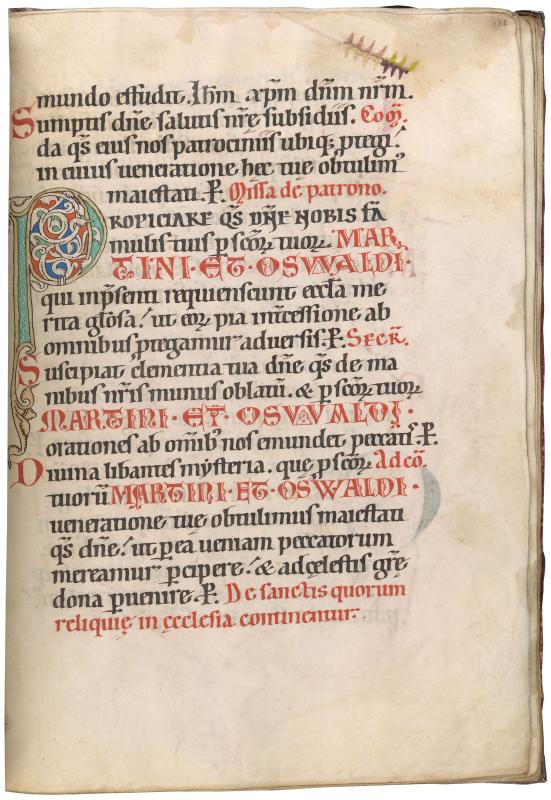 mundo effudit. Ihm xpm dnm nrm.
Sumptis dne salutis nre subsidiis. Com.
da qs eius nos patrociniis ubiq; ptegi.
in cuius ueneratione hec tue obtulim
maiestati. P. Missa de patrono.
PROPICIARE QS DNE NOBIS FA
mulis tuis p scor tuor. MAR
TINI · ET · OSWALDI ·
qui inpsenti requiescunt eccla me
rita glosa. ut eor pia intcessione ab
omnibus ptegamur aduersis. P. Secr.
Suscipiat clementia tua dne qs de ma
nibus nris munus oblatu. & p scor tuor
MARTINI · ET · OSWALDI ·
orationes ab omib nos emundet peccatis. P.
Diuina libantes mysteria. que p scor Ad co.
tuoru MARTINI · ET · OSWALDI ·
ueneratione tue obtulimus maiestati
qs dne. ut p ea ueniam peccatorum
mereamur pcipere. & adcelestis gre
dona puenire. P. De sanctis quorum
reliquie in ecclesia continentur.